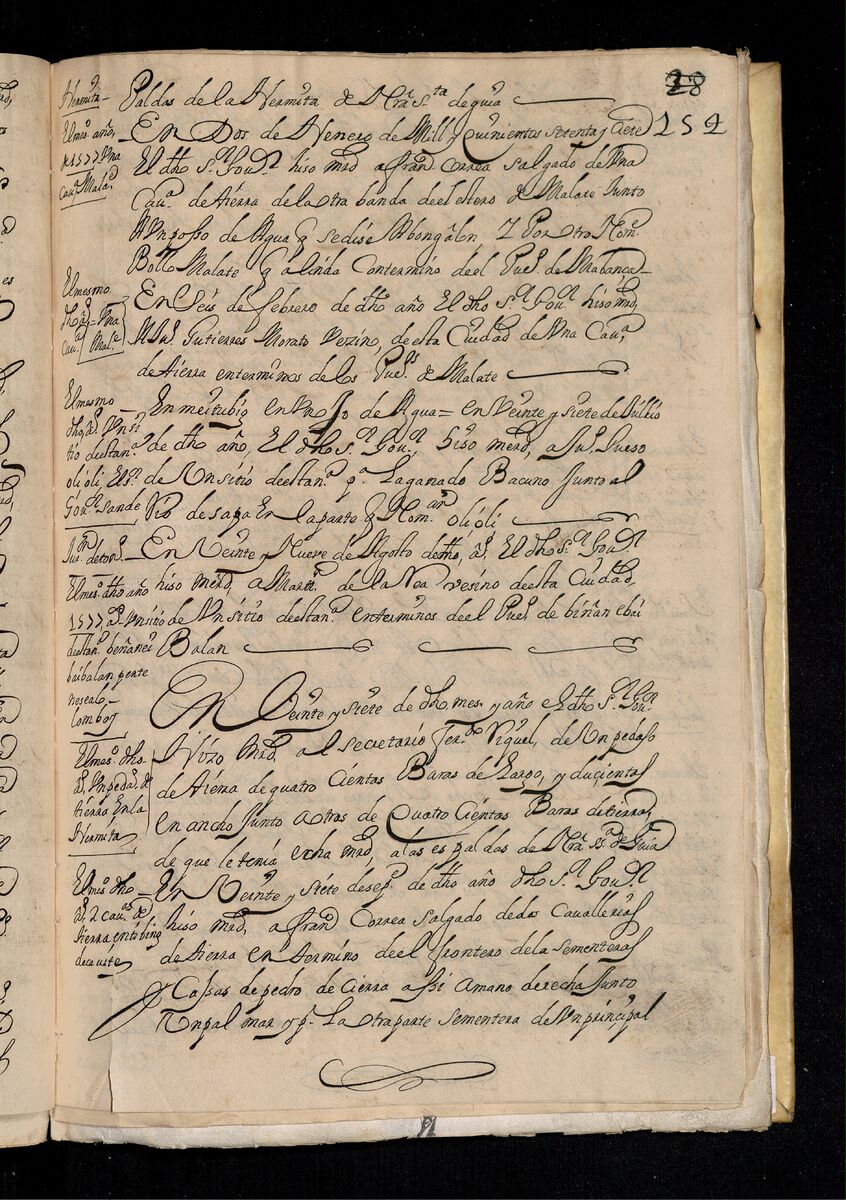 28
151
Hermita
Paldas de la Hermita de Nrâ Sta de guia
El mesº año,
de 1577 Vna
Cauª Malaᵈ
En Dos de Henero de Mill y Quinientos setenta y siete
El dho sʳ Gouʳ hiso mrd a franᶜᵒ Correa salgado de Vna
Cauª de tierra de la otra banda de el estero de Malate Junto
A Vn posso de Agua q se dise Abongalon, Y Por otro Nomᵉ
Bollo Malate q alinda Con termino de el Pueº de Mabanca
El mesmo
dho aº = Vna
Cauª Malᵉ
En Seis de febrero de dho año El dho sʳ Gouʳ hiso mrd
A Juº Gutierres Morato Vezinº de esta Ciudad de Vna Cauª
de tierra en terminos de los Pueˢ de Malate
El mesmo
dho aº Vn si
tio de estanª
olioli, Elsʳ
Gouʳ Sande
En meitubig en Vn ojo de Agua = en Veinte y siete de Jullio
de dho año, El dho sʳ Gouʳ hiso merd, a Juº Pueso
de Vn sitio de estanª pª La ganado Bacuno Junto al
Rio de sapa En la parte q Nomᵃⁿ olioli
El mesº dho año
1577 aº Vn sitio de
estanª beñan ei
baibalan perte
nese al
lomboy
En Veinte y Nueve de Agosto de dho, aº El dho sʳ Gouʳ
hiso Merd, a Martⁿ de la Rea vesino de esta Ciudad,
de Vn sitio de estanª en terminos de el Pueº de biñan e bai
Balan
El mesº dho
aº, Vn pedaº de
tierra En la
Hermita
En Veinte y siete de dho mes y año el dho Sʳ Gouʳ
Hizo Mrd al secretario ferᵈᵒ Riquel, de Vn pedaso
de tierra de quatro Cientas Baras de Largo, y ducientas
en ancho Junto a otras de Quatro Cientas Baras de tierra,
de que le tenia echa mrd, a las espaldas de Nrâ Sª de Guia
El mesº dho
aº 2 cauªˢ de
tierra en tibing
de cauite
En Veinte y siete de sepᵉ de dho año dho Sʳ Gouʳ
hiso mrd, a franᶜᵒ Correa salgado de dos Cauallerias
de tierra en termino de el frontero de la sementeras
y Cassas de pedro de Cierra assi a mano derecha Junto
mar y pʳ La otra parte sementera de Vn principal